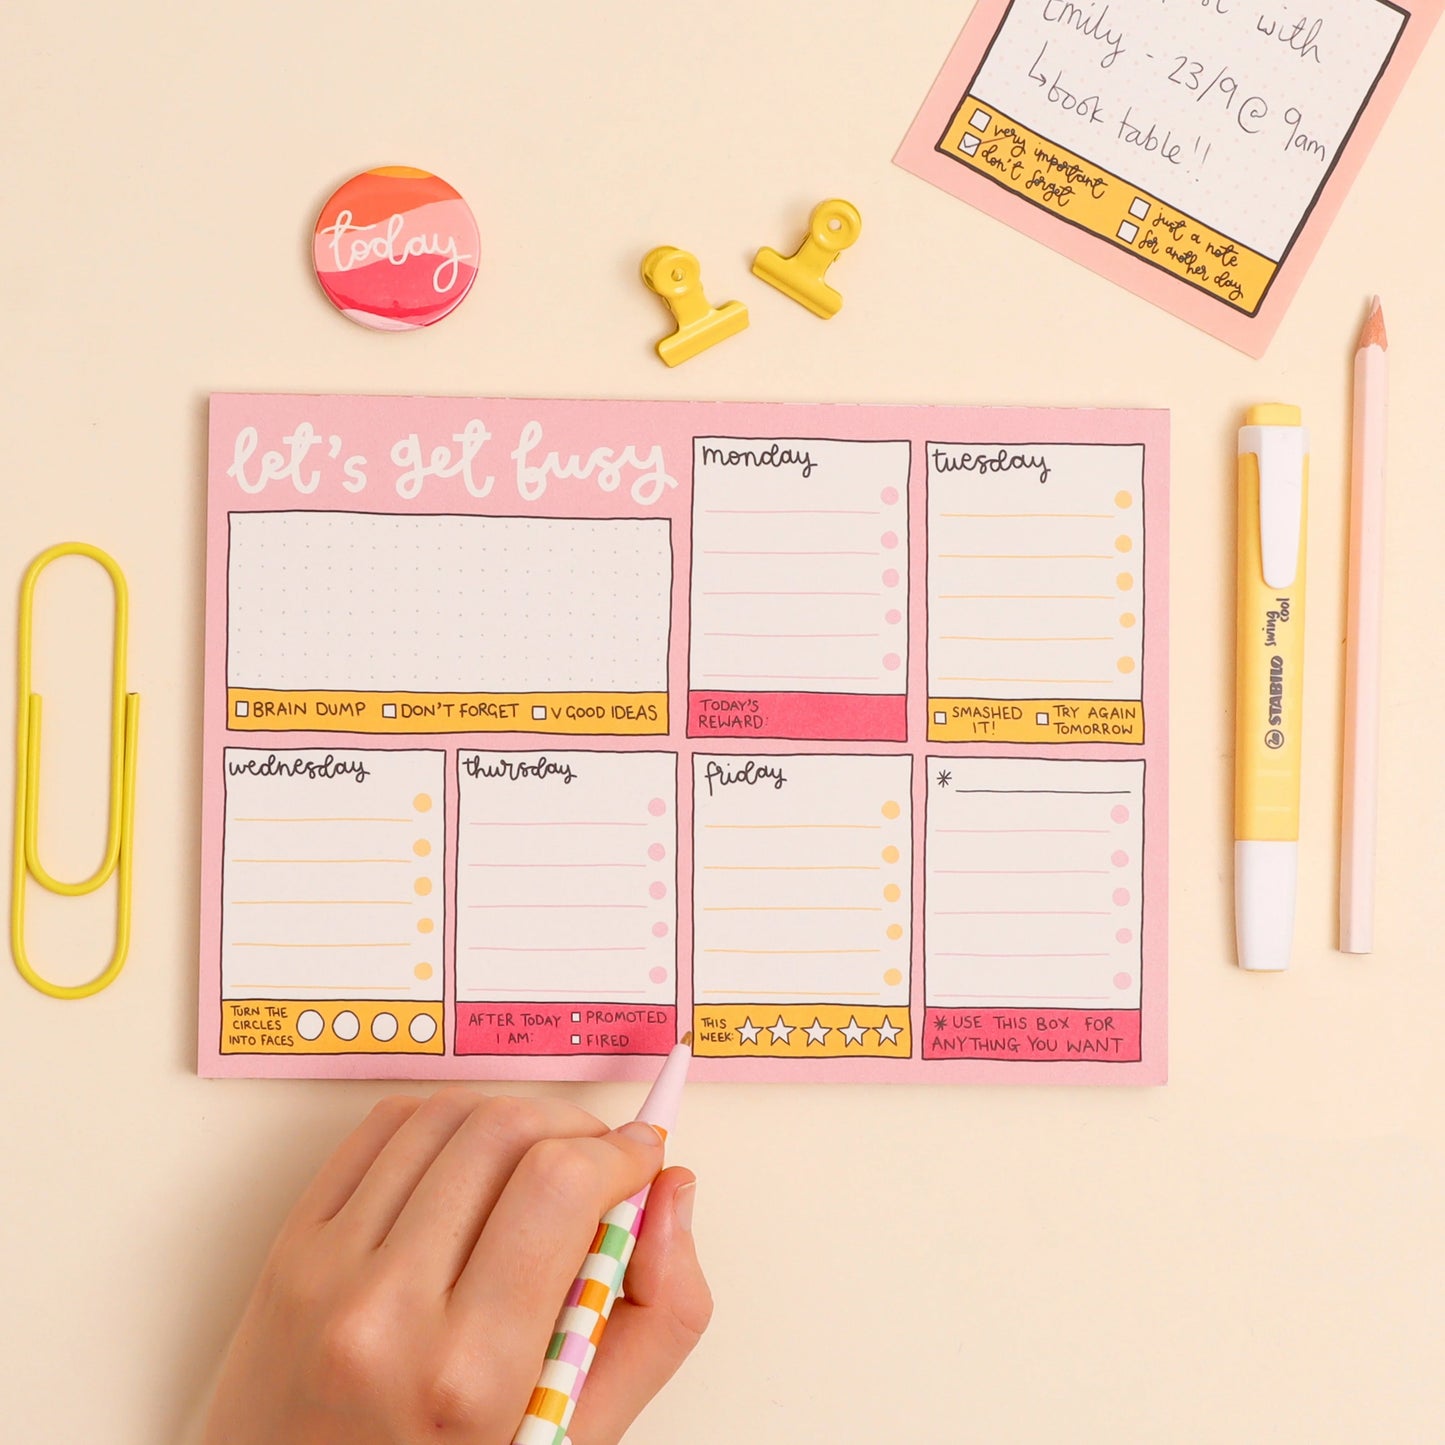 with
Emily - 23/9 @ 9am
↳book table!!
very important
don't forget
just a note
for another day
today
let's get busy
BRAIN DUMP
DON'T FORGET
V GOOD IDEAS
monday
TODAY'S
REWARD:
tuesday
SMASHED
IT!
TRY AGAIN
TOMORROW
wednesday
TURN THE
CIRCLES
INTO FACES
thursday
AFTER TODAY
I AM:
PROMOTED
FIRED
friday
THIS
WEEK:
*
*USE THIS BOX FOR
ANYTHING YOU WANT
STABILO
swing
cool